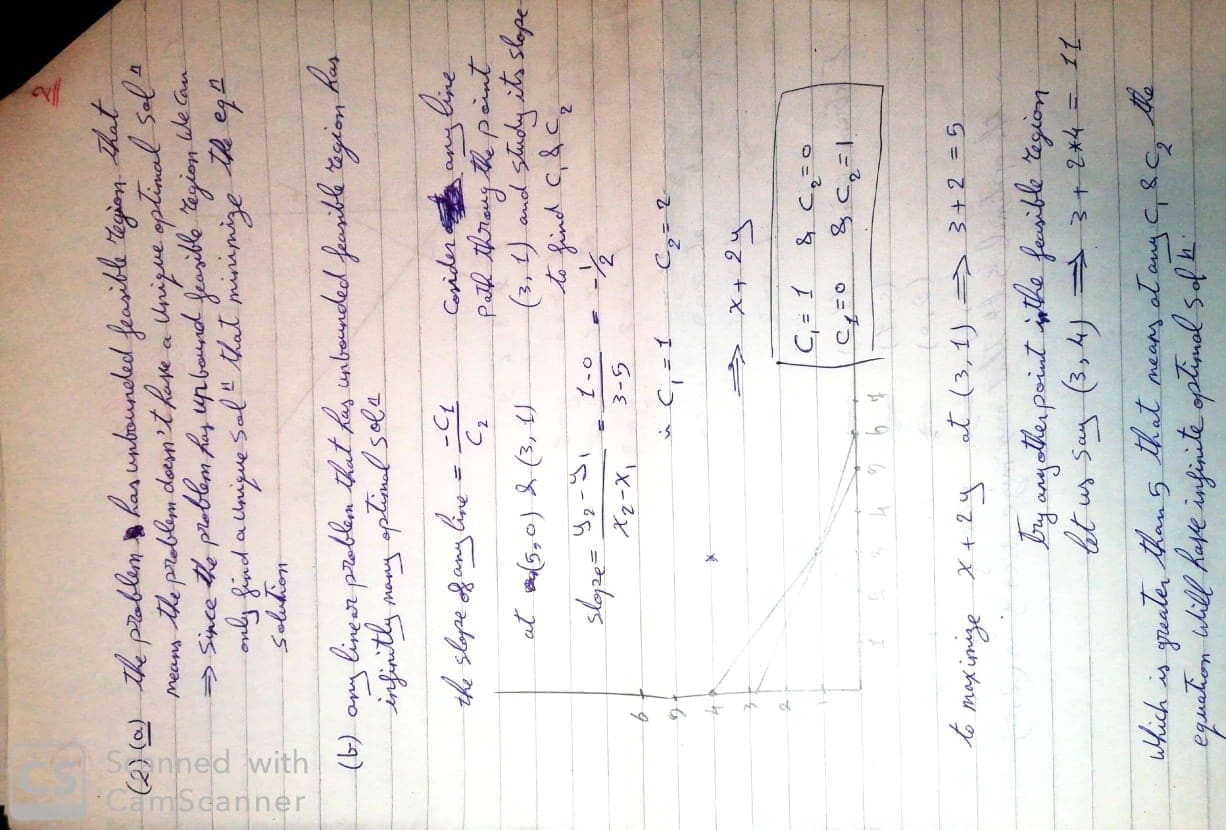 2
(2) (a) the problem has unbounded feasible region. that
means the problem doesn't have a Unique optimal solⁿ
⇒ Since the problem has upbound feasible region we can
only find a Unique solⁿ that minimize the eqⁿ
Solution
(b) any linear problem that has unbounded feasible region has
infinitly many optimal solⁿ
the slope of any line = -C1/C2
Consider any line
path throug the point
(3, 1) and study its slope
to find C1 & C2
at (5,0) & (3,1)
slope = (y2-y1)/(x2-x1) = (1-0)/(3-5) = -1/2
C1 = 1 C2 = 2
⇒ x + 2y
C1 = 1 & C2 = 0
C1 = 0 & C2 = 1
6
5
4
3
2
1
1 2 3 4 5 6 7
to maximize x + 2y at (3,1) ⇒ 3 + 2 = 5
try any other point in the feasible region
let us say (3,4) ⇒ 3 + 2*4 = 11
which is greater than 5 that means at any C1 & C2 the
equation will have infinite optimal solⁿ.
CS
Scanned with
CamScanner